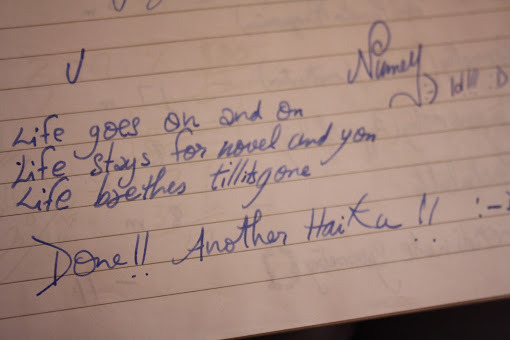 Life goes on and on
Life stays for novel and yon
Life brethes till its gone
Done!! Another Haiku !! :-